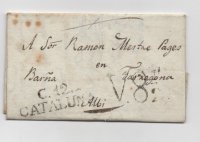 A Sor Ramon Mestre Pages
en
Barña Tarragona
C. 12.
CATALUÑA
V. 8